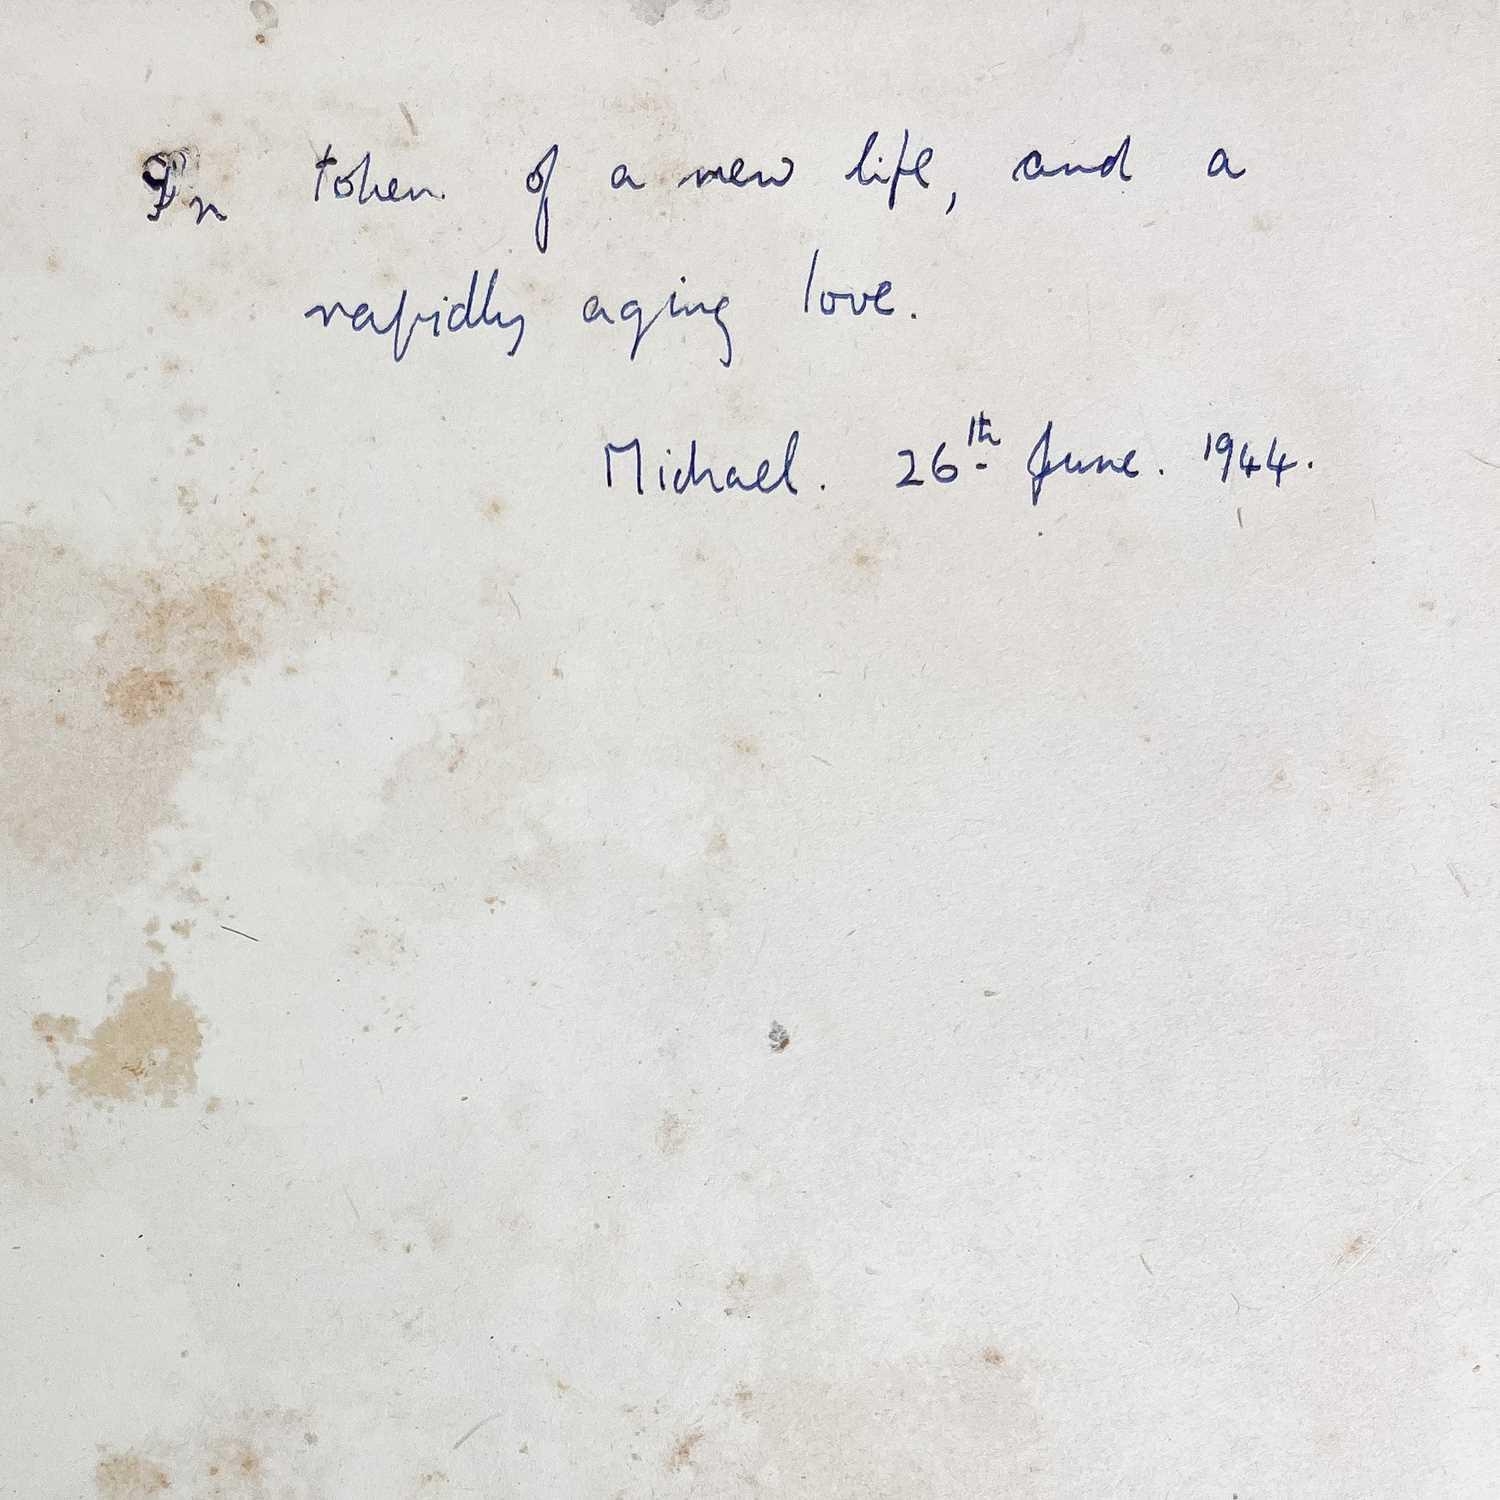 In token of a new life, and a
rapidly aging love.
Michael. 26th June. 1944.